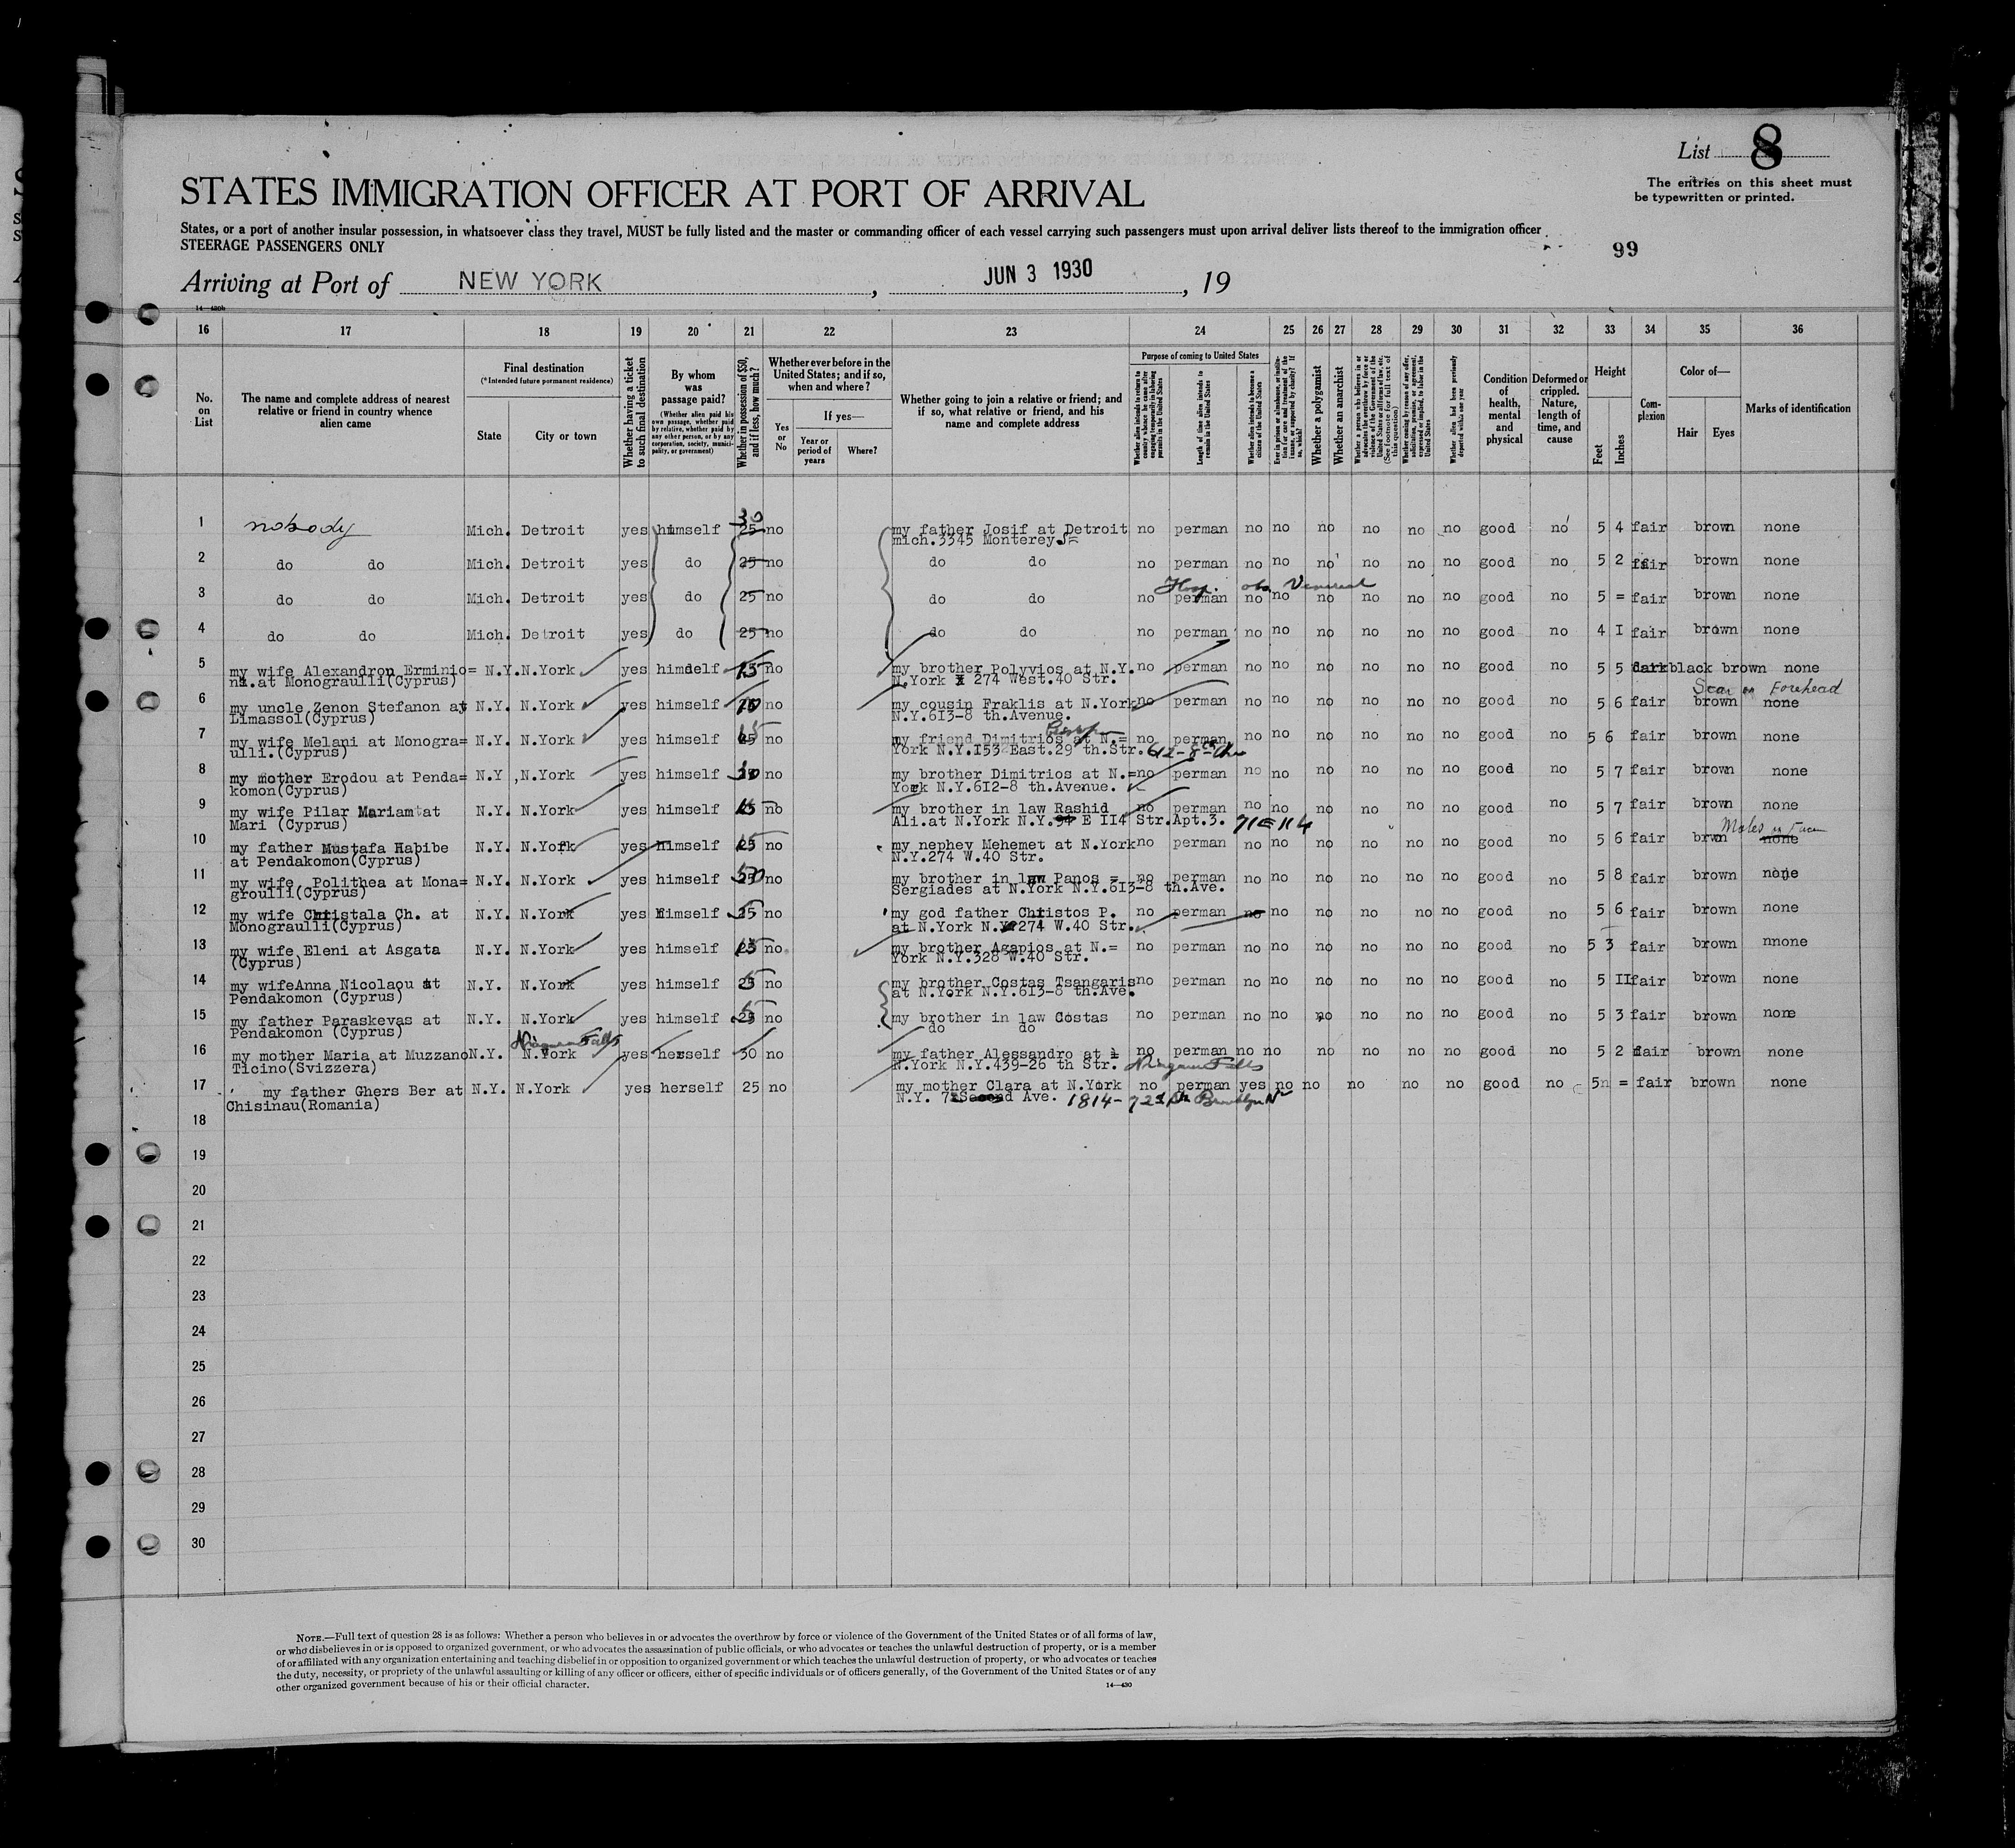 List 8
The entries on this sheet must
be typewritten or printed.
STATES IMMIGRATION OFFICER AT PORT OF ARRIVAL
States, or a port of another insular possession, in whatsoever class they travel, MUST be fully listed and the master or commanding officer of each vessel carrying such passengers must upon arrival deliver lists thereof to the immigration officer
STEERAGE PASSENGERS ONLY
99
Arriving at Port of NEW YORK, JUN 3 1930, 19
16 17 18 19 20 21 22 23 24 25 26 27 28 29 30 31 32 33 34 35 36
No. on List
The name and complete address of nearest relative or friend in country whence alien came
Final destination
(*Intended future permanent residence)
State
City or town
Whether having a ticket to such final destination
By whom was passage paid?
(Whether alien paid his own passage, whether paid by relative, whether paid by any other person, or by any corporation, society, municipality, or government)
Whether in possession of $50, and if less, how much?
Whether ever before in the United States; and if so, when and where?
Yes or No
If yes—
Year or period of years
Where?
Whether going to join a relative or friend; and if so, what relative or friend, and his name and complete address
Purpose of coming to United States
Length of time alien intends to remain in the United States
Whether alien intends to become a citizen of the United States
Whether a polygamist
Whether an anarchist
Condition of health, mental and physical
Deformed or crippled. Nature, length of time, and cause
Height
Feet
Inches
Complexion
Color of—
Hair
Eyes
Marks of identification
1 nobody Mich. Detroit yes himself 25 30 no my father Josif at Detroit no perman no no no no no no good no 5 4 fair brown none
mich.3345 Monterey
2 do do Mich. Detroit yes do 25 no do do no perman no no no no no no good no 5 2 fair brown none
Hosp. obs
3 do do Mich. Detroit yes do 25 no do do no perman no no no no no no good no 5 = fair brown none
4 do do Mich. Detroit yes do 25 no do do no perman no no no no no no good no 4 I fair brown none
5 my wife Alexandron Erminio= N.Y. N.York yes himdelf no my brother Polyvios at N.Y. no perman no no no no no no good no 5 5 dark black brown none
na.at Monograulli(Cyprus) N.York 274 West.40 Str.
Scar on Forehead
6 my uncle Zenon Stefanon at N.Y. N.York yes himself no my cousin Fraklis at N.York no perman no no no no no no good no 5 6 fair brown none
Limassol(Cyprus) N.Y.613-8 th.Avenue.
7 my wife Melani at Monogra= N.Y. N.York yes himself no my friend Dimitrios at N.= no perman no no no no no no good no 5 6 fair brown none
ulli.(Cyprus) York N.Y.I53 East.29 th.Str. 612-8th Ave
8 my mother Erodou at Penda= N.Y , N.York yes himself no my brother Dimitrios at N.= no perman no no no no no no good no 5 7 fair brown none
komon(Cyprus) York N.Y.612-8 th.Avenue.
9 my wife Pilar Mariam at N.Y. N.York yes himself no my brother in law Rashid no perman no no no no no no good no 5 7 fair brown none
Mari (Cyprus) Ali.at N.York N.Y. E II4 Str.Apt.3. 71 E 114
Moles on Face
10 my father Mustafa Habibe N.Y. N.York yes himself no my nephey Mehemet at N.York no perman no no no no no no good no 5 6 fair brwn none
at Pendakomon(Cyprus) N.Y.274 W.40 Str.
11 my wife Polithea at Mona= N.Y. N.York yes himself 50 no my brother in law Panos = no perman no no no no no no good no 5 8 fair brown none
groulli(Cyprus) Sergiades at N.York N.Y.6I3-8 th.Ave.
12 my wife Christala Ch. at N.Y. N.York yes himself no my god father Christos P. no perman no no no no no no good no 5 6 fair brown none
Monograulli(Cyprus) at N.York N.Y.274 W.40 Str.
13 my wife Eleni at Asgata N.Y. N.York yes himself no my brother Agapios at N.= no perman no no no no no no good no 5 3 fair brown nnone
(Cyprus) York N.Y.328 W.40 Str.
14 my wifeAnna Nicolaou at N.Y. N.York yes himself no my brother Costas Tsangaris no perman no no no no no no good no 5 II fair brown none
Pendakomon (Cyprus) at N.York N.Y.6I3-8 th.Ave.
15 my father Paraskevas at N.Y. N.York yes himself no my brother in law Costas no perman no no no no no no good no 5 3 fair brown none
Pendakomon (Cyprus) do do
Niagara Falls
16 my mother Maria at Muzzano N.Y. N.York yes herself 30 no my father Alessandro at no perman no no no no no no good no 5 2 fair brown none
Ticino(Svizzera) N.York N.Y.439-26 th Str. Niagara Falls
17 my father Ghers Ber at N.Y. N.York yes herself 25 no my mother Clara at N.York no perman yes no no no no no good no 5 = fair brown none
Chisinau(Romania) N.Y. Second Ave. 1814-72d St Brooklyn
18
19
20
21
22
23
24
25
26
27
28
29
30
NOTE.—Full text of question 28 is as follows: Whether a person who believes in or advocates the overthrow by force or violence of the Government of the United States or of all forms of law,
or who disbelieves in or is opposed to organized government, or who advocates the assassination of public officials, or who advocates or teaches the unlawful destruction of property, or is a member
of or affiliated with any organization entertaining and teaching disbelief in or opposition to organized government or which teaches the unlawful destruction of property, or who advocates or teaches
the duty, necessity, or propriety of the unlawful assaulting or killing of any officer or officers, either of specific individuals or of officers generally, of the Government of the United States or of any
other organized government because of his or their official character.
14—430